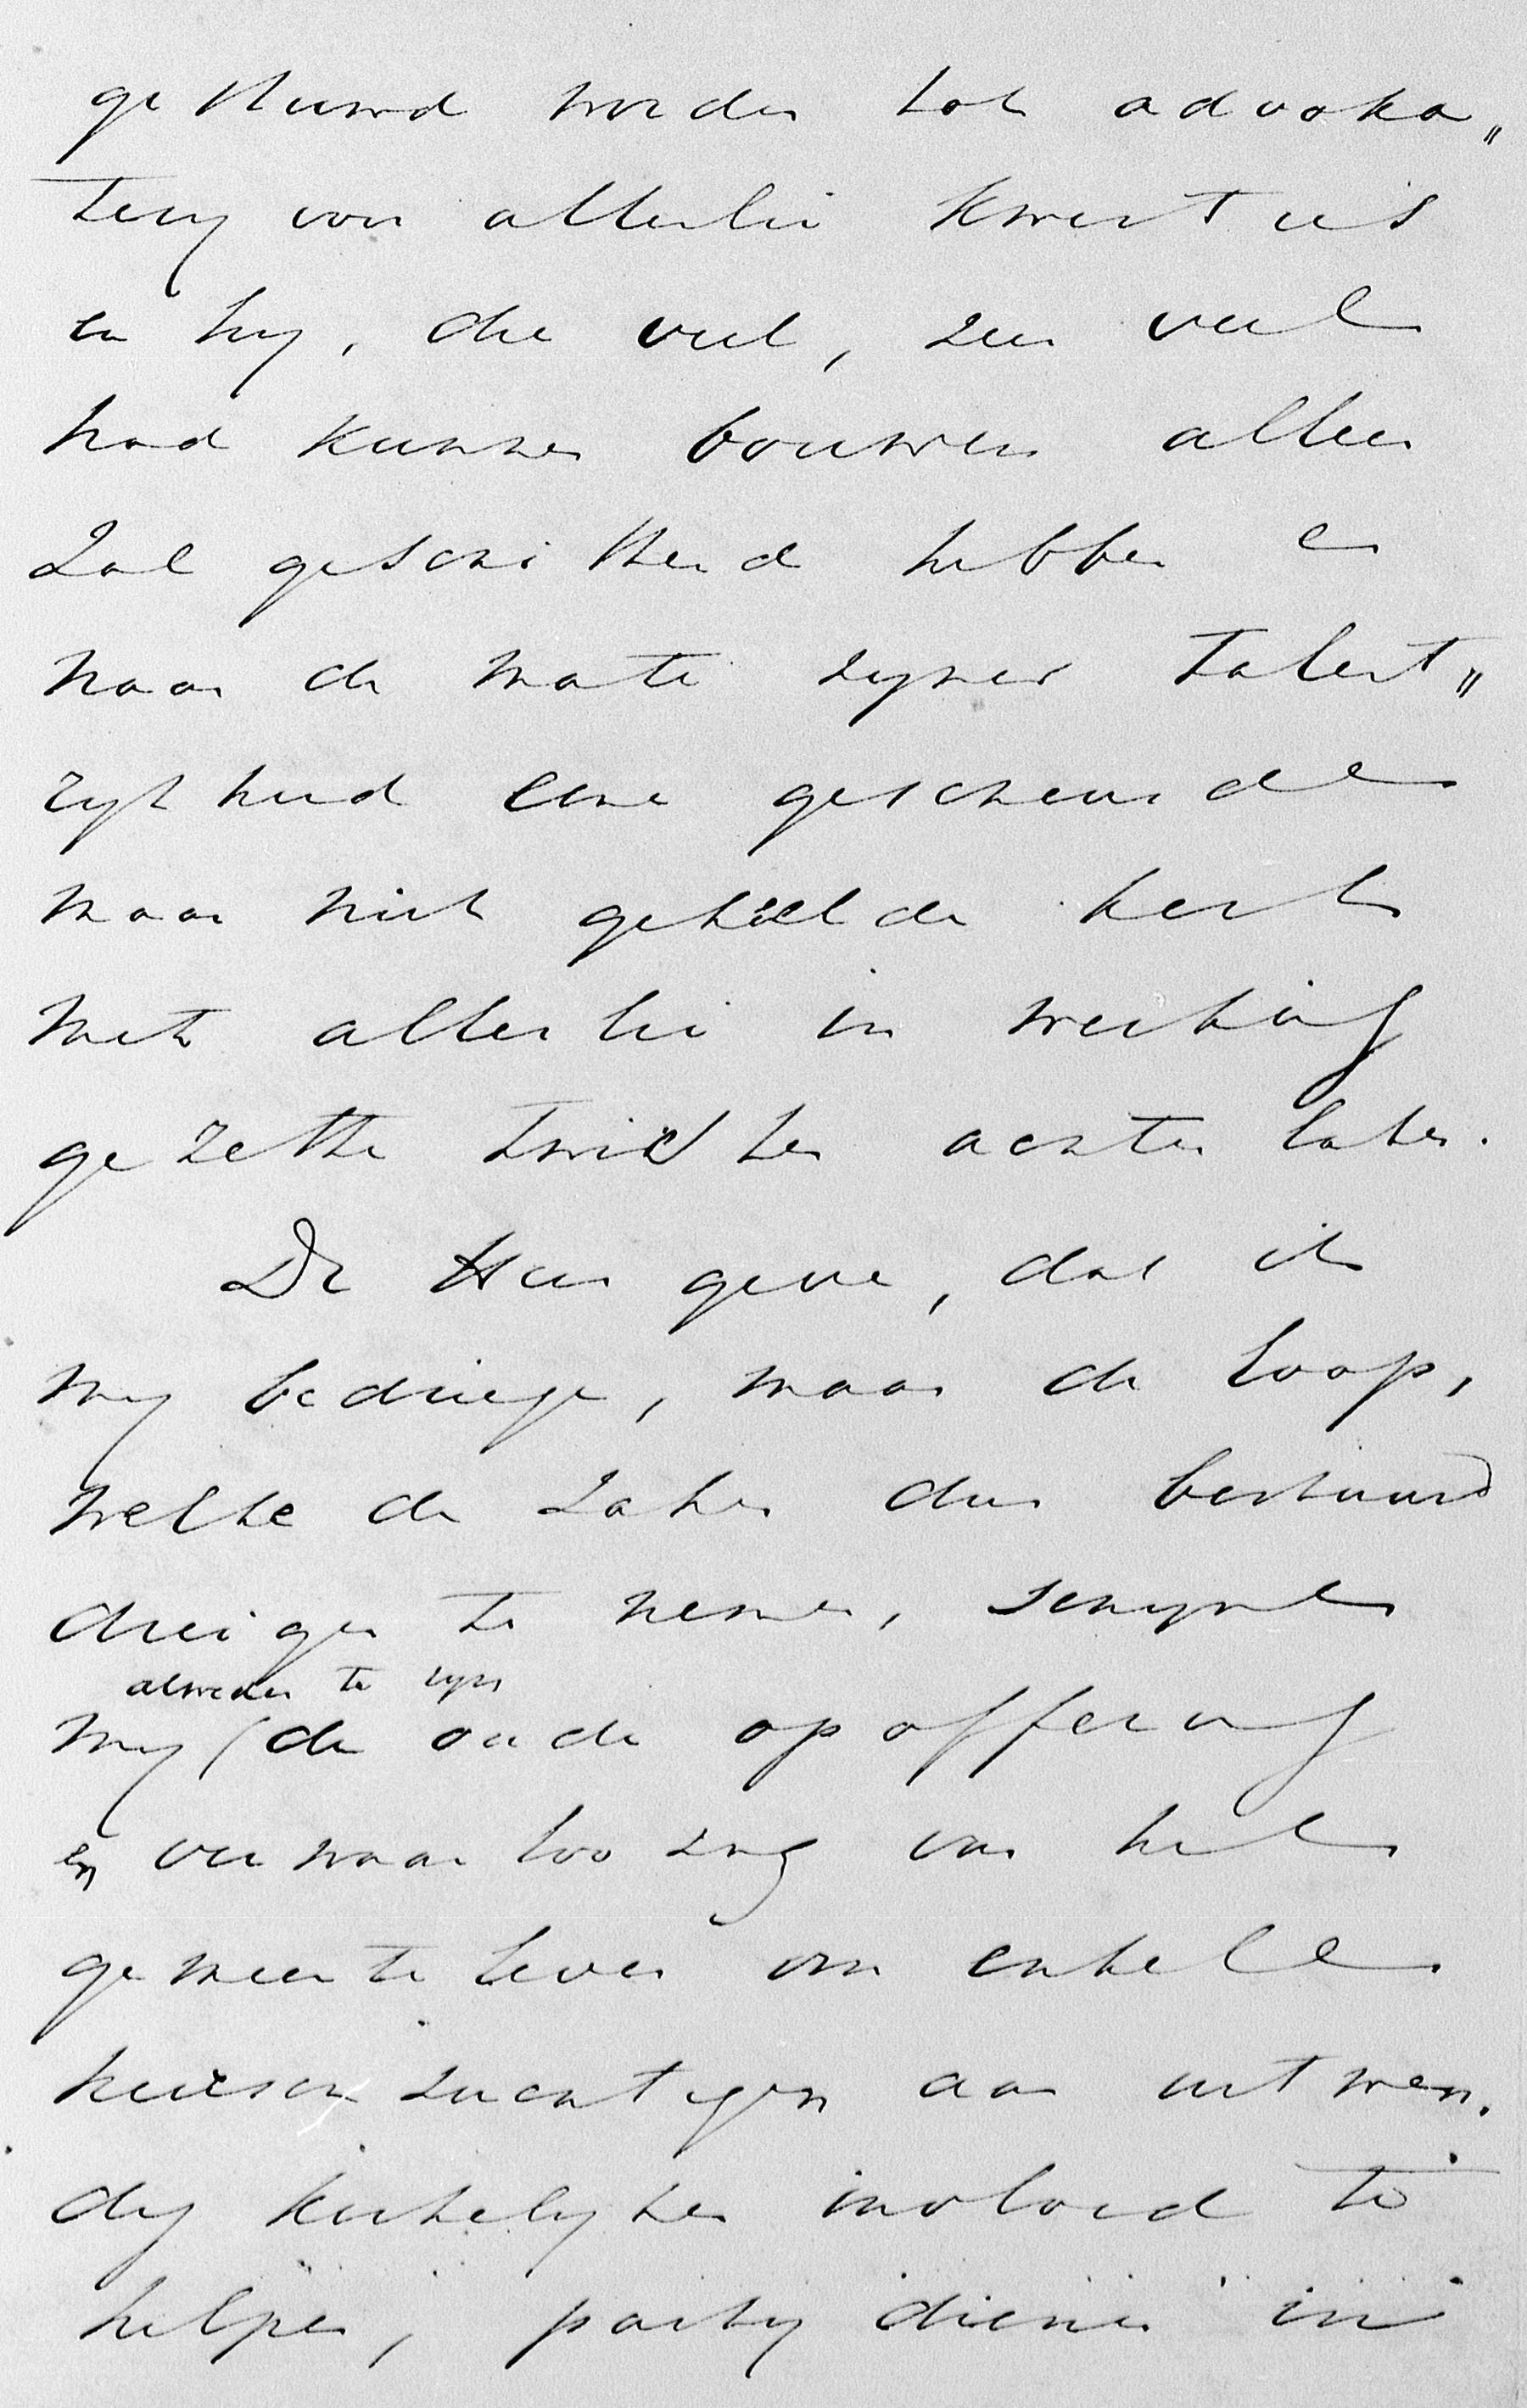 gestuurd worden tot advoka„
tery van allerlei kwesties
en hy, die veel, zeer veel
had kunnen bouwen alleen
zal geschitterd hebben en
naar de mate zyner talent„
rykheid eene gescheurde
maar niet geheelde kerk
met allerlei in werking
gezette twisten achterlaten.
De Heer geve, dat ik
my bedriege, maar de loop,
welke de zaken dus bestuurd
dreigen te nemen, schynen
alweder te zyn
my (de oude opoffering
en verwaarloozing van het
gemeente leven om enkele
heerschzuchtigen aan uitwen„
dig kerkelyken invloed te
helpen, party dienen in